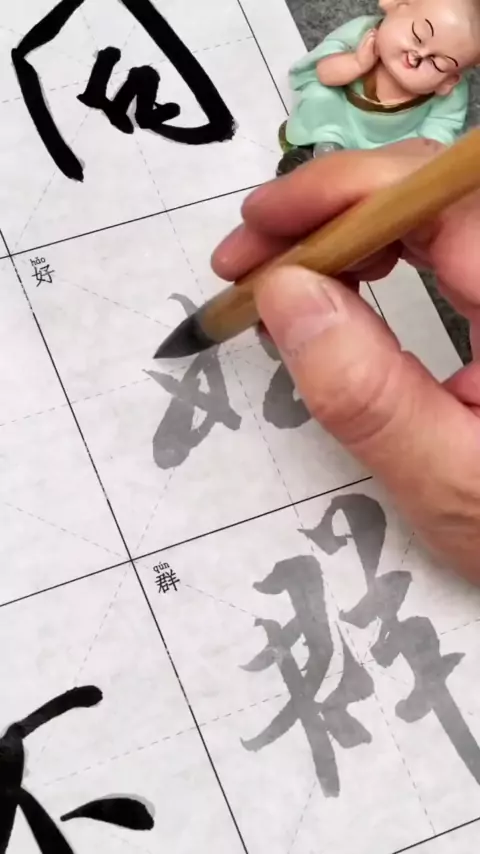 hǎo
好
好
qún
群
群